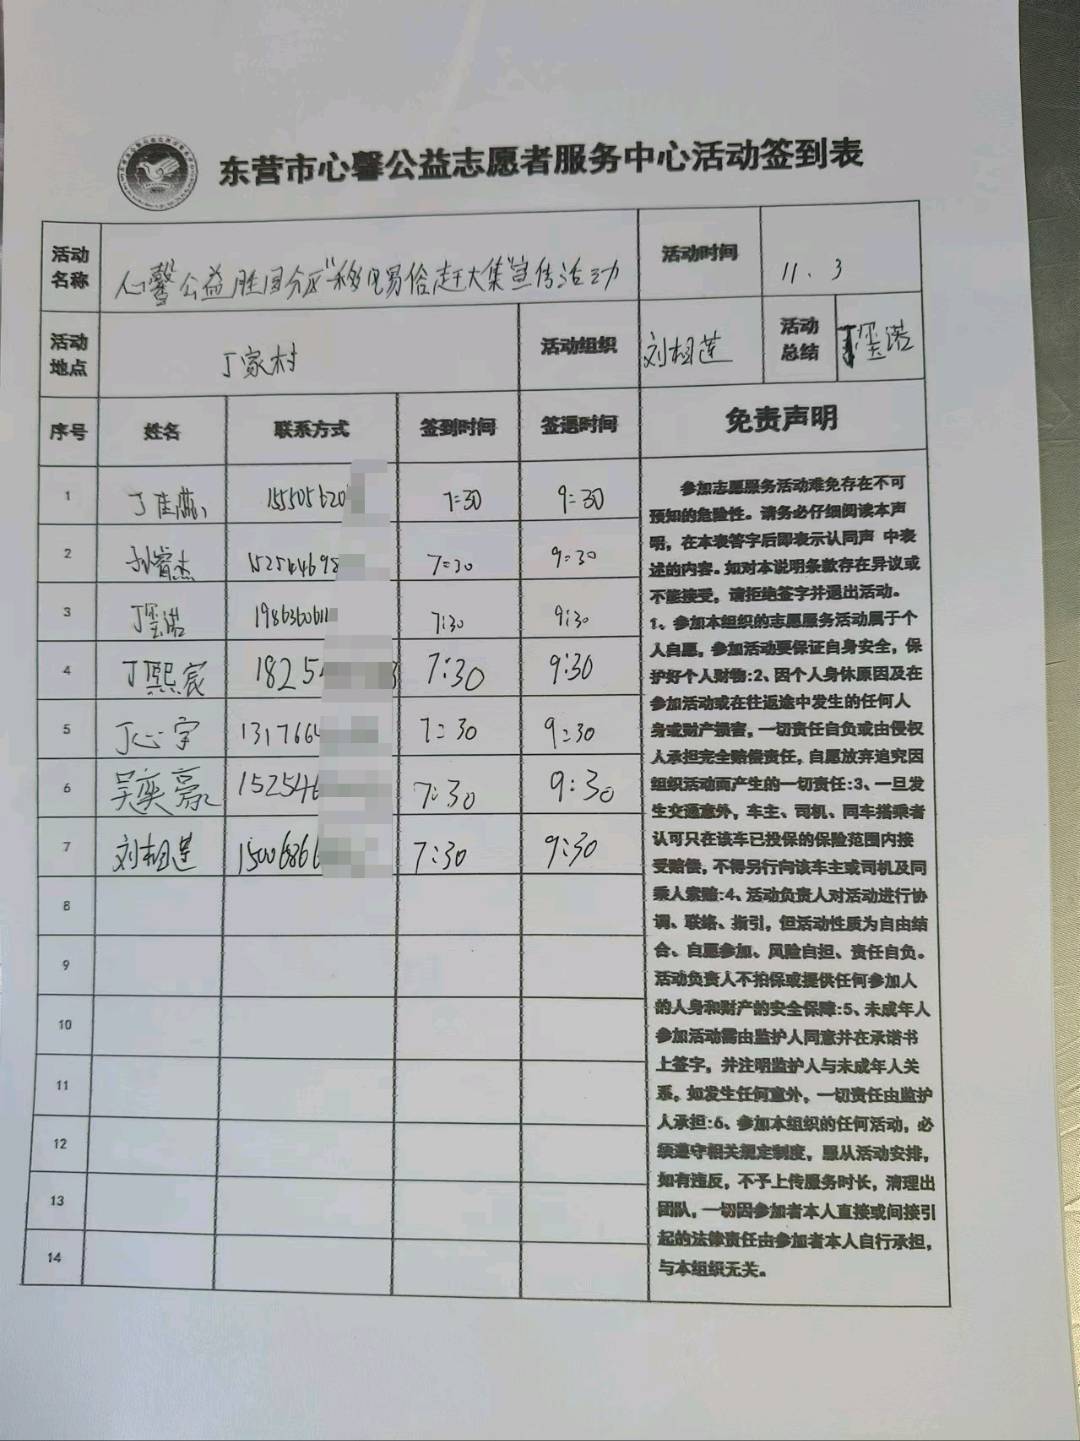 东营市心馨公益志愿者服务中心活动签到表
活动名称 心馨公益胜园分区"移风易俗赶大集"宣传活动 活动时间 11.3
活动地点 丁家村 活动组织 刘相莲 活动总结 丁玺诺
序号 姓名 联系方式 签到时间 签退时间 免责声明
1 丁佳 15505620 7:30 9:30
2 孙睿杰 152544698 7:30 9:30
3 丁玺诺 1986360611 7:30 9:30
4 丁熙宸 1825 7:30 9:30
5 丁心宇 1317664 7:30 9:30
6 吴奕豪 1525446 7:30 9:30
7 刘相莲 15006866 7:30 9:30
8
9
10
11
12
13
14
参加志愿服务活动难免存在不可
预知的危险性。请务必仔细阅读本声
明，在本表签字后即表示认同声 中表
述的内容。如对本说明条款存在异议或
不能接受，请拒绝签字并退出活动。
1、参加本组织的志愿服务活动属于个
人自愿，参加活动要保证自身安全，保
护好个人财物:2、因个人身休原因及在
参加活动或在往返途中发生的任何人
身或财产损害，一切责任自负或由侵权
人承担完全赔偿责任，自愿放弃追究因
组织活动而产生的一切责任:3、一旦发
生交通意外，车主、司机、同车搭乘者
认可只在该车已投保的保险范围内接
受赔偿，不得另行向该车主或司机及同
乘人索赔:4、活动负责人对活动进行协
调、联络、指引，但活动性质为自由结
合、自愿参加、风险自担、责任自负。
活动负责人不拍保或提供任何参加人
的人身和财产的安全保障:5、未成年人
参加活动需由监护人同意并在承诺书
上签字，并注明监护人与未成年人关
系。如发生任何意外，一切责任由监护
人承担:6、参加本组织的任何活动，必
须遵守相关规定制度，服从活动安排，
如有违反，不予上传服务时长，清理出
团队，一切因参加者本人直接或间接引
起的法律责任由参加者本人自行承担，
与本组织无关。